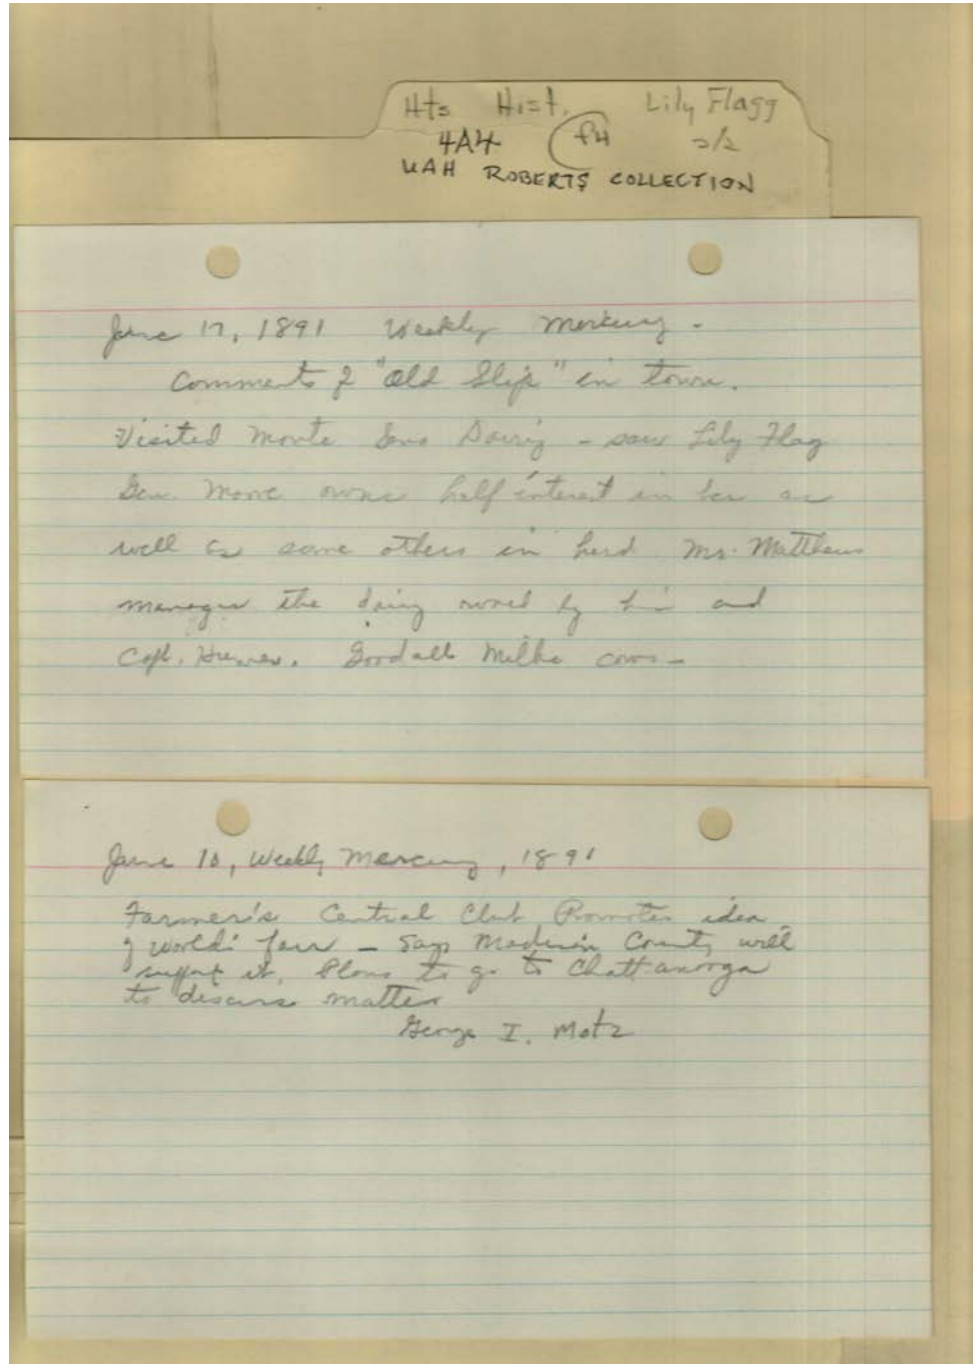 Hts Hist. Lily Flagg
4A4 f4 2/2
UAH ROBERTS COLLECTION
June 17, 1891 Weekly Mercury -
Comments of "Old Slip" in town.
Visited Monte Sano Dairy - saw Lily Flag
Gen. Moore owns half interest in her as
well as some others in herd Mr. Matthews
manages the dairy owned by him and
Capt. Goodall milks cows -
June 10, Weekly Mercury, 1891
Farmer's Central Club Promotes idea
of world's fair - Says Madison County will
support it. Plans to go to Chattanooga
to discuss matter
George I. Motz